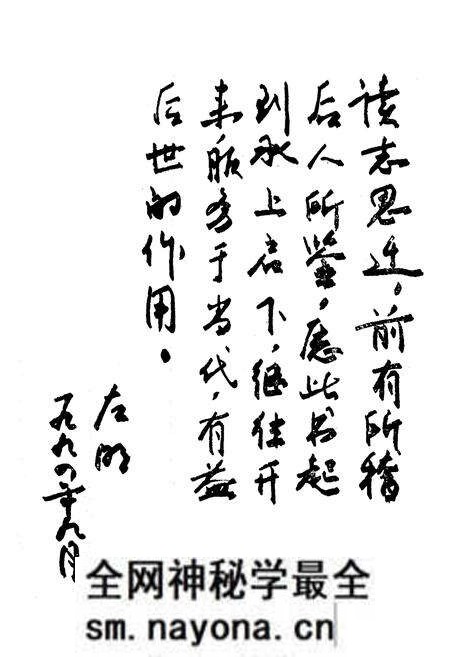 读志思迁，前有所稽
后人所鉴，愿此书起
到承上启下，继往开
来，服务于当代，有益
后世的作用。
左明
一九九四年九月
全网神秘学最全
sm.nayona.cn